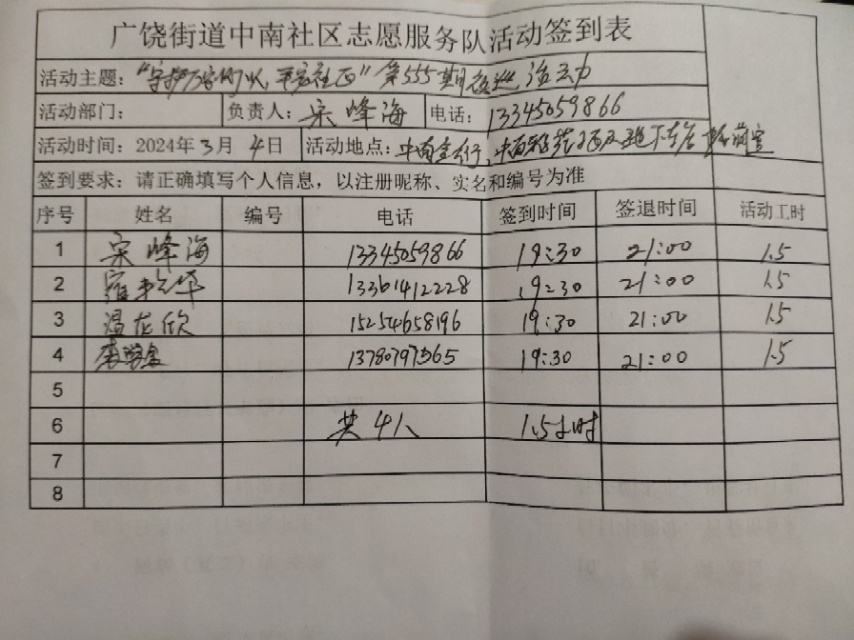 广饶街道中南社区志愿服务队活动签到表
活动主题：“守护万家灯火，平安社区”第555期夜巡活动
活动部门： 负责人：宋峰海 电话：13345059866
活动时间：2024年3月4日 活动地点：中南
签到要求：请正确填写个人信息，以注册昵称、实名和编号为准
序号 姓名 编号 电话 签到时间 签退时间 活动工时
1 宋峰海 13345059866 19:30 21:00 1.5
2 13361412228 19:30 21:00 1.5
3 温花欣 15254658196 19:30 21:00 1.5
4 13780797565 19:30 21:00 1.5
5
6 共4人 1.5小时
7
8